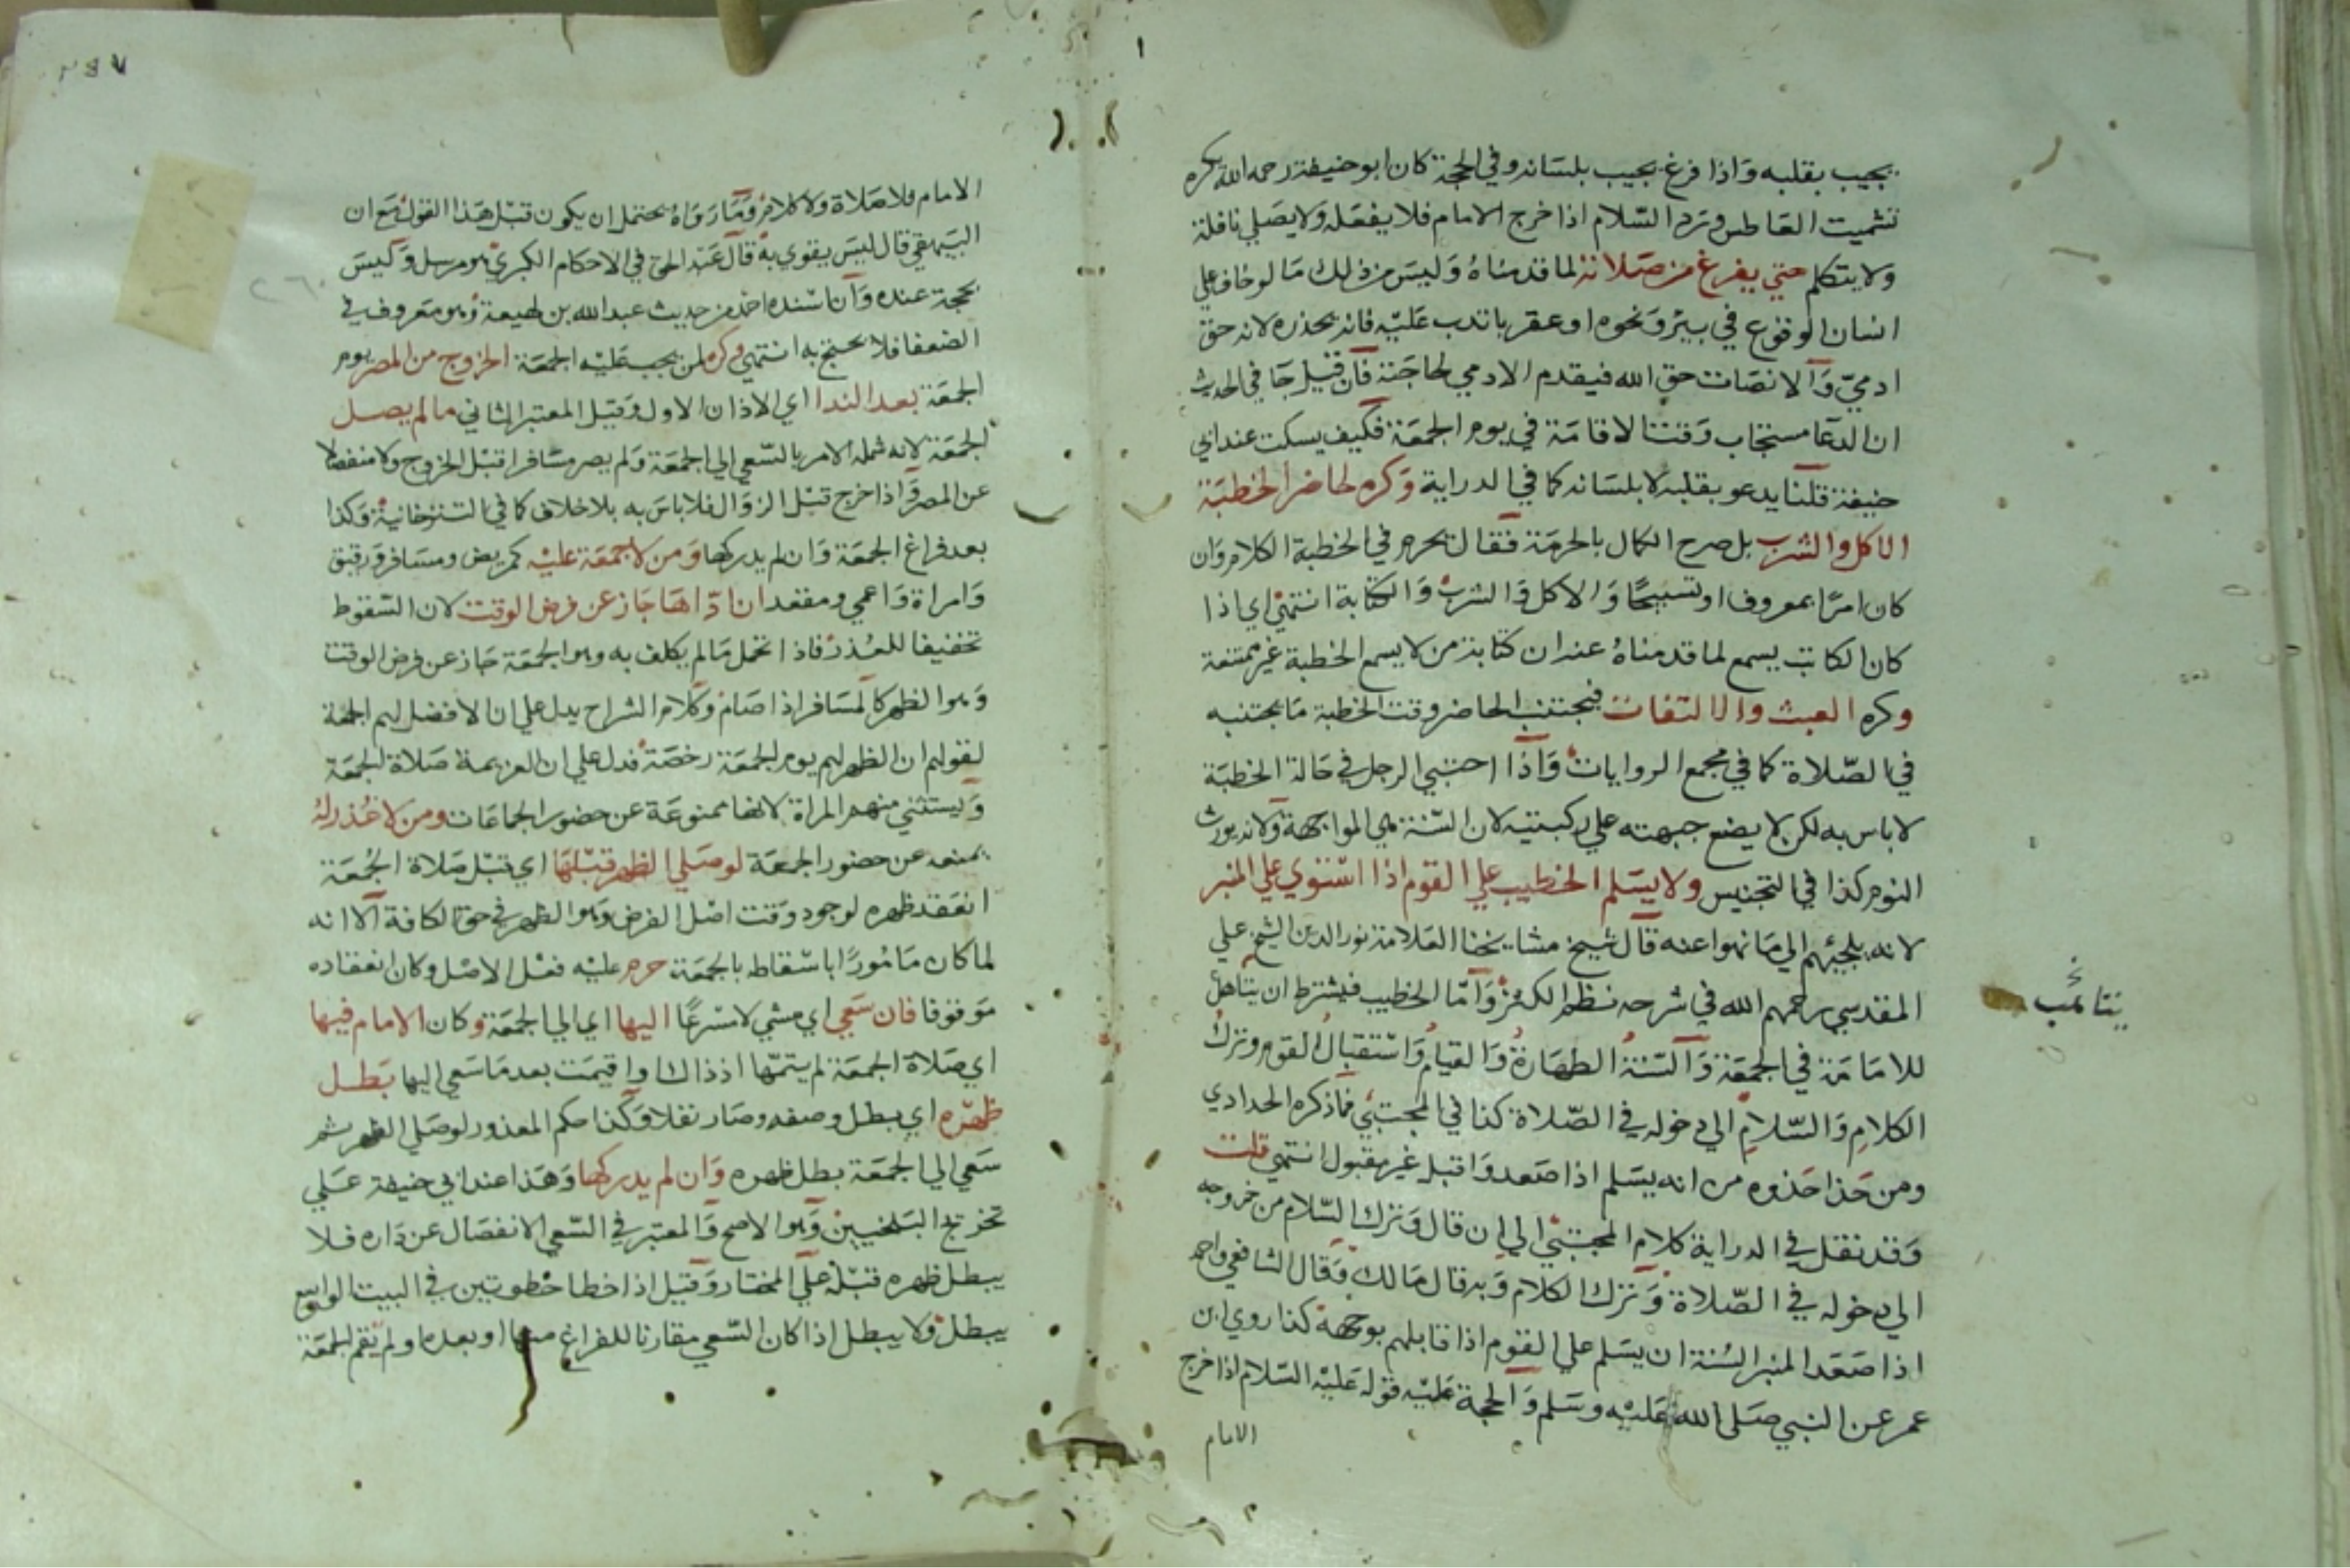 يجيب بقلبه واذا فرغ يجيب بلسانه وفي الحجة كان ابو حنيفة رحمه الله يكره
تشميت العاطس ورد السلام اذا خرج الامام فلا يفعله ولا يصلي نافلة
ولا يتكلم حتي يفرغ من صلاته لما قدمناه وليس من ذلك ما لو خاف علي
انسان الوقوع في بير ونحوه او عقربا تدب عليه فانه يحذره لانه حق
ادمي والانصات حق الله فيقدم الادمي لحاجته فان قيل جا في الحديث
ان الدعا مستجاب وقت الاقامة في يوم الجمعة فكيف يسكت عند ابي
حنيفة قلنا يدعو بقلبه لا بلسانه كما في الدراية وكره لحاضر الخطبة
الاكل والشرب بل صرح الكمال بالحرمة فقال يحرم في الخطبة الكلام وان
كان امرا بمعروف او تسبيحا والاكل والشرب والكتابة انتهي اي اذا
كان الكاتب يسمع لما قدمناه عند ان كتابة من لا يسمع الخطبة غير ممتنعة
وكره العبث والالتفات فيجتنب الحاضر وقت الخطبة ما يجتنبه
في الصلاة كما في مجمع الروايات واذا احتبي الرجل في حالة الخطبة
لا باس به لكن لا يضع جبهته علي ركبتيه لان السنة هي المواجهة ولانه يورث
النوم كذا في التجنيس ولا يسلم الخطيب علي القوم اذا استوي علي المنبر
لانه يلجئهم الي ما نهوا عنه قال شيخ مشايخنا العلامة نور الدين الشيخ علي
المقدسي رحمهم الله في شرحه نظم الكنز واما الخطيب فيشترط ان يتاهل
يتاهب
للامامة في الجمعة والسنة الطهارة والقيام واستقبال القوم وترك
الكلام والسلام الي دخوله في الصلاة كذا في المجتبي فما ذكره الحدادي
ومن حذا حذوه من انه يسلم اذا صعد واقبل غير مقبول انتهي قلت
وقد نقل في الدراية كلام المجتبي الي ان قال وترك السلام من خروجه
الي دخوله في الصلاة وترك الكلام وبه قال مالك وقال الشافعي واحمد
اذا صعد المنبر السنة ان يسلم علي القوم اذا قابلهم بوجهه كذا روي ابن
عمر عن النبي صلى الله عليه وسلم والحجة عليه قوله عليه السلام اذا خرج
الامام
الامام فلا صلاة ولا كلام وما رواه يحتمل ان يكون قبل هذا القول مع ان
البيهقي قال ليس بقوي به قال عبد الحق في الاحكام الكبري هو مرسل وليس
بحجة عنده وان اسنده احمد من حديث عبد الله بن لهيعة وهو معروف في
الضعفا فلا يحتج به انتهي وكره لمن يجب عليه الجمعة الخروج من المصر يوم
الجمعة بعد الندا اي الاذان الاول وقيل المعتبر الثاني ما لم يصل
الجمعة لانه شمله الامر بالسعي الي الجمعة ولم يصر مسافرا قبل الخروج ولا منفصلا
عن المصر واذا خرج قبل الزوال فلا باس به بلا خلاف كما في التتارخانية وكذا
بعد فراغ الجمعة وان لم يدركها ومن لا جمعة عليه كمريض ومسافر ورقيق
وامراة واعمي ومقعد ان اداها جاز عن فرض الوقت لان السقوط
تخفيفا للعذر فاذا تحمل ما لم يكلف به وهو الجمعة جاز عن فرض الوقت
وهو الظهر كالمسافر اذا صام وكلام الشراح يدل علي ان الافضل لهم الجمعة
لقولهم ان الظهر لهم يوم الجمعة رخصة فدل علي ان العزيمة صلاة الجمعة
وليستثني منهم المراة لانها ممنوعة عن حضور الجماعات ومن لا عذر له
يمنعه عن حضور الجمعة لو صلي الظهر قبلها اي قبل صلاة الجمعة
انعقد ظهره لوجود وقت اصل الفرض وهو الظهر في حق الكافة الا انه
لما كان مامورا باسقاطه بالجمعة حرم عليه فعل الاصل وكان انعقاده
موقوفا فان سعي اي مشي لا مسرعا اليها اي الي الجمعة وكان الامام فيها
اي صلاة الجمعة لم يتمها اذ ذاك او اقيمت بعد ما سعي اليها بطل
ظهره اي بطل وصفه وصار نفلا وكذا حكم المعذور لو صلي الظهر ثم
سعي الي الجمعة بطل ظهره وان لم يدركها وهذا عند ابي حنيفة علي
تخريج البلخيين وهو الاصح والمعتبر في السعي الانفصال عن داره فلا
يبطل ظهره قبله علي المختار وقيل اذا خطا خطوتين في البيت الواسع
يبطل ولا يبطل اذا كان السعي مقارنا للفراغ منها او بعده او لم تقم الجمعة